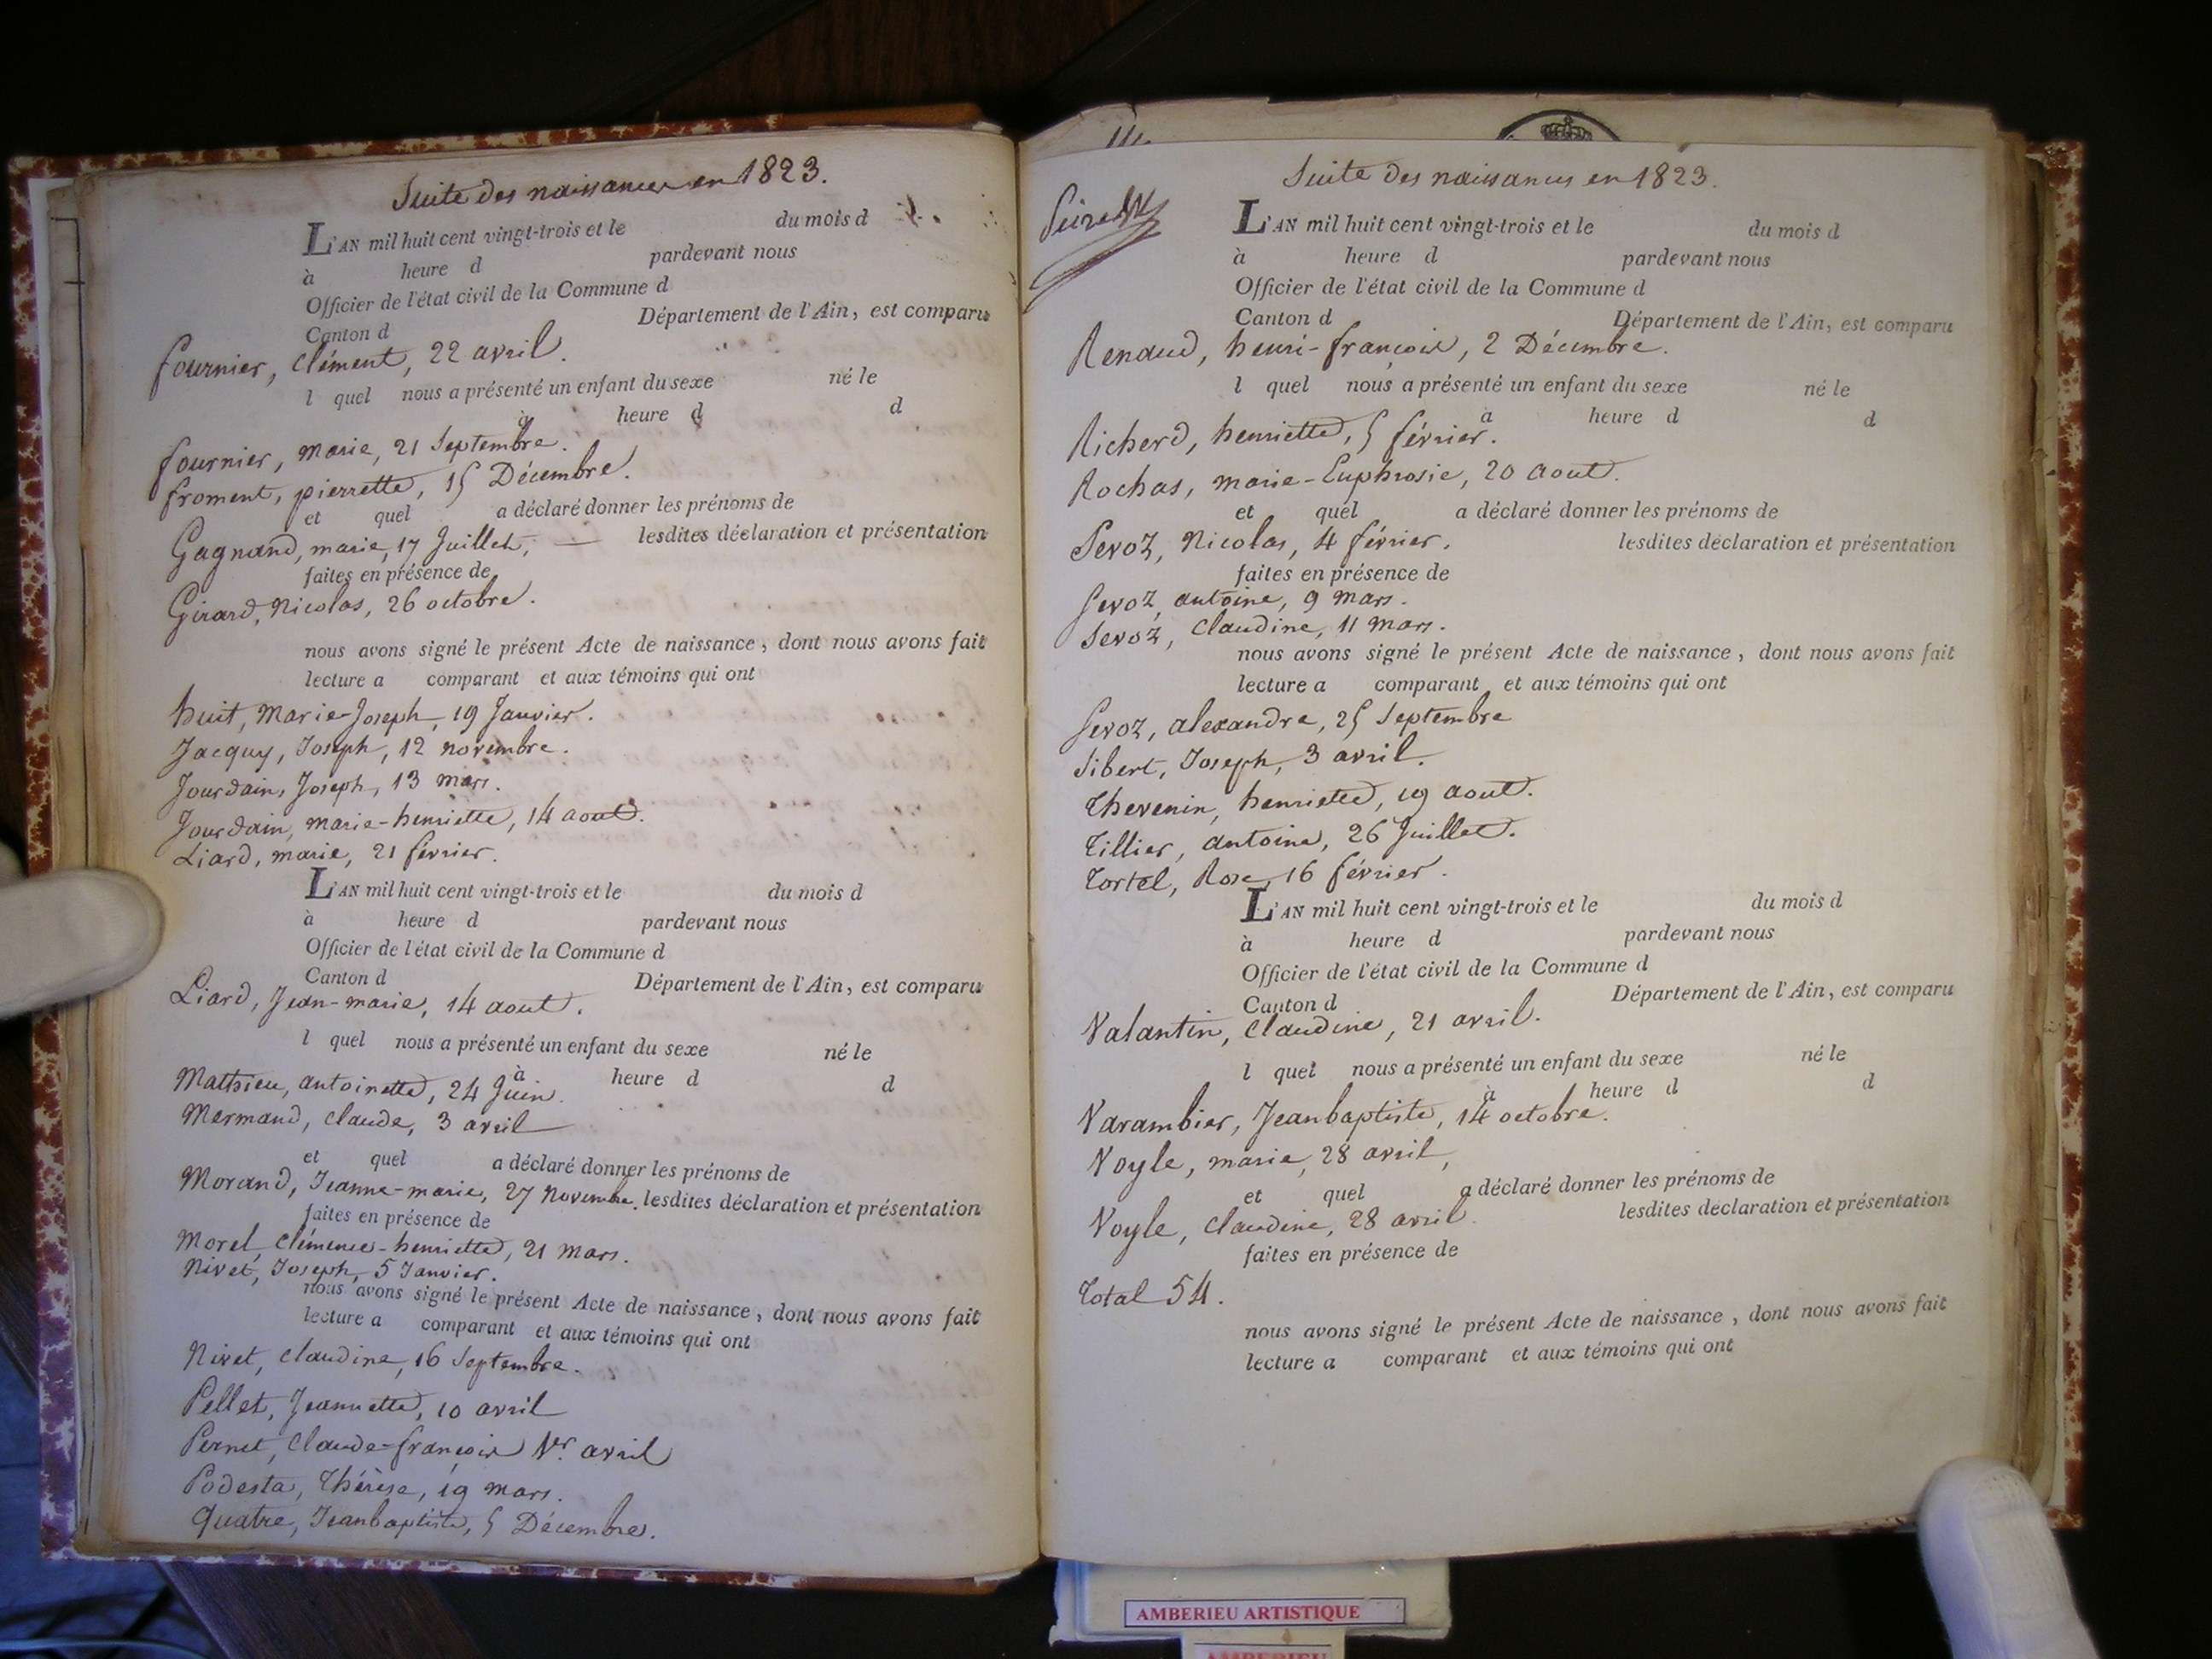 Suite des naissances en 1823.
L'AN mil huit cent vingt-trois et le du mois d
à heure d pardevant nous
Officier de l'état civil de la Commune d
Canton d Département de l'Ain, est comparu
fournier, Clément, 22 avril.
l quel nous a présenté un enfant du sexe né le
à heure d d
fournier, marie, 21 Septembre.
froment, pierrette, 15 Décembre.
et quel a déclaré donner les prénoms de
Gagnand, marie, 17 Juillet, — lesdites déclaration et présentation
faites en présence de
Girard, Nicolas, 26 octobre.
nous avons signé le présent Acte de naissance, dont nous avons fait
lecture a comparant et aux témoins qui ont
huit, Marie-Joseph, 19 Janvier.
Jacquy, Joseph, 12 novembre.
Jourdain, Joseph, 13 mars.
Jourdain, marie-henriette, 14 aout.
Liard, marie, 21 février.
L'AN mil huit cent vingt-trois et le du mois d
à heure d pardevant nous
Officier de l'état civil de la Commune d
Canton d Département de l'Ain, est comparu
Liard, Jean-marie, 14 aout.
l quel nous a présenté un enfant du sexe né le
à heure d d
Mathieu, antoinette, 24 Juin.
Mermand, claude, 3 avril
et quel a déclaré donner les prénoms de
Morand, Jeanne-marie, 27 Novembre. lesdites déclaration et présentation
faites en présence de
Morel, clémence-henriette, 21 mars.
Nivet, Joseph, 5 Janvier.
nous avons signé le présent Acte de naissance, dont nous avons fait
lecture a comparant et aux témoins qui ont
Nivet, claudine, 16 Septembre.
Pellet, Jeannette, 10 avril
Pernet, Claude-françois 1er. avril
Podesta, Thérèse, 19 mars.
Quatre, Jeanbaptiste, 5 Décembre.
Suite des naissances en 1823.
L'AN mil huit cent vingt-trois et le du mois d
à heure d pardevant nous
Officier de l'état civil de la Commune d
Canton d Département de l'Ain, est comparu
Renaud, henri-françois, 2 Décembre.
l quel nous a présenté un enfant du sexe né le
à heure d d
Richerd, henriette, 5 février.
Rochas, marie-Euphrosie, 20 aout.
et quel a déclaré donner les prénoms de
Sevoz, Nicolas, 4 février. lesdites déclaration et présentation
faites en présence de
Sevoz, antoine, 9 mars.
Sevoz, Claudine, 11 mars.
nous avons signé le présent Acte de naissance, dont nous avons fait
lecture a comparant et aux témoins qui ont
Sevoz, alexandre, 25 Septembre
Sibert, Joseph, 3 avril.
Thevenin, henriette, 19 aout.
Tillier, antoine, 26 Juillet.
Tortel, Rose, 16 février.
L'AN mil huit cent vingt-trois et le du mois d
à heure d pardevant nous
Officier de l'état civil de la Commune d
Canton d Département de l'Ain, est comparu
Valantin, Claudine, 21 avril.
l quel nous a présenté un enfant du sexe né le
à heure d d
Varambier, Jeanbaptiste, 14 octobre.
Voyle, marie, 28 avril,
et quel a déclaré donner les prénoms de
Voyle, claudine, 28 avril. lesdites déclaration et présentation
faites en présence de
Total 54.
nous avons signé le présent Acte de naissance, dont nous avons fait
lecture a comparant et aux témoins qui ont
AMBERIEU ARTISTIQUE
AMBERIEU